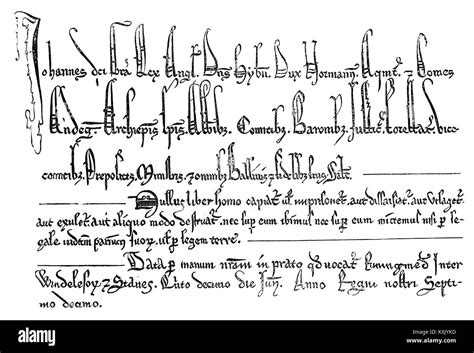 Johannes dei gra Rex Angl. Dns Hybn. Dux Normann. Aqmt. z Comes
Andeg. Archiepis Epis Abbibz. Comitibz. Baronibz. Justic. forestar. vice
comitibz. Prepositz. Ministris. z omnibz Ballivis z fidelibz suis Salt.
Nullus liber homo capiat ul imprisonet aut dissaisiat. aut utlaget.
aut exulet. aut aliquo modo destruat. nec sup eum ibimus nec sup eum mittemus nisi per le
gale judicm parium suor. ul per legem terre.
Data p manum nram in prato qd vocat Runingmed Inter
Windelesor z Stanes. Quto decimo die Jun. Anno Regni nostri Septi
mo decimo.
alamy
Image ID: KXJYKD
www.alamy.com